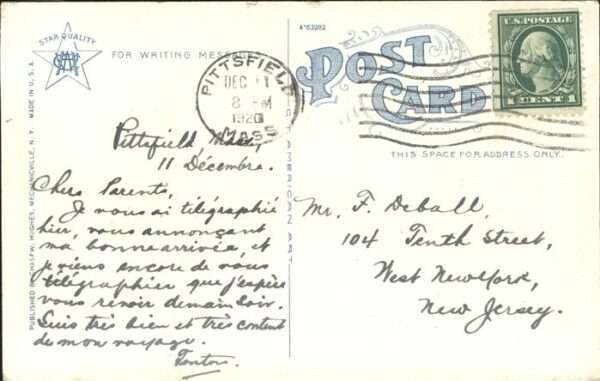 STAR QUALITY
FOR WRITING MESSAGES
A-53282
POST
CARD
U.S. POSTAGE
1 CENT 1
PITTSFIELD
DEC 11
8 - M
1920
MASS
THIS SPACE FOR ADDRESS ONLY.
PUBLISHED BY CHAS. W. HUGHES, MECHANICVILLE, N.Y. MADE IN U.S.A.
Pittsfield, Mass,
11 Décembre.
Chers Parents,
Je vous ai télégraphié
hier, vous annonçant
ma bonne arrivée, et
je viens encore de vous
télégraphier que j'espère
vous revoir demain soir.
Suis très bien et très content
de mon voyage.
Mr. F. Deball,
104 Tenth Street,
West New York,
New Jersey.